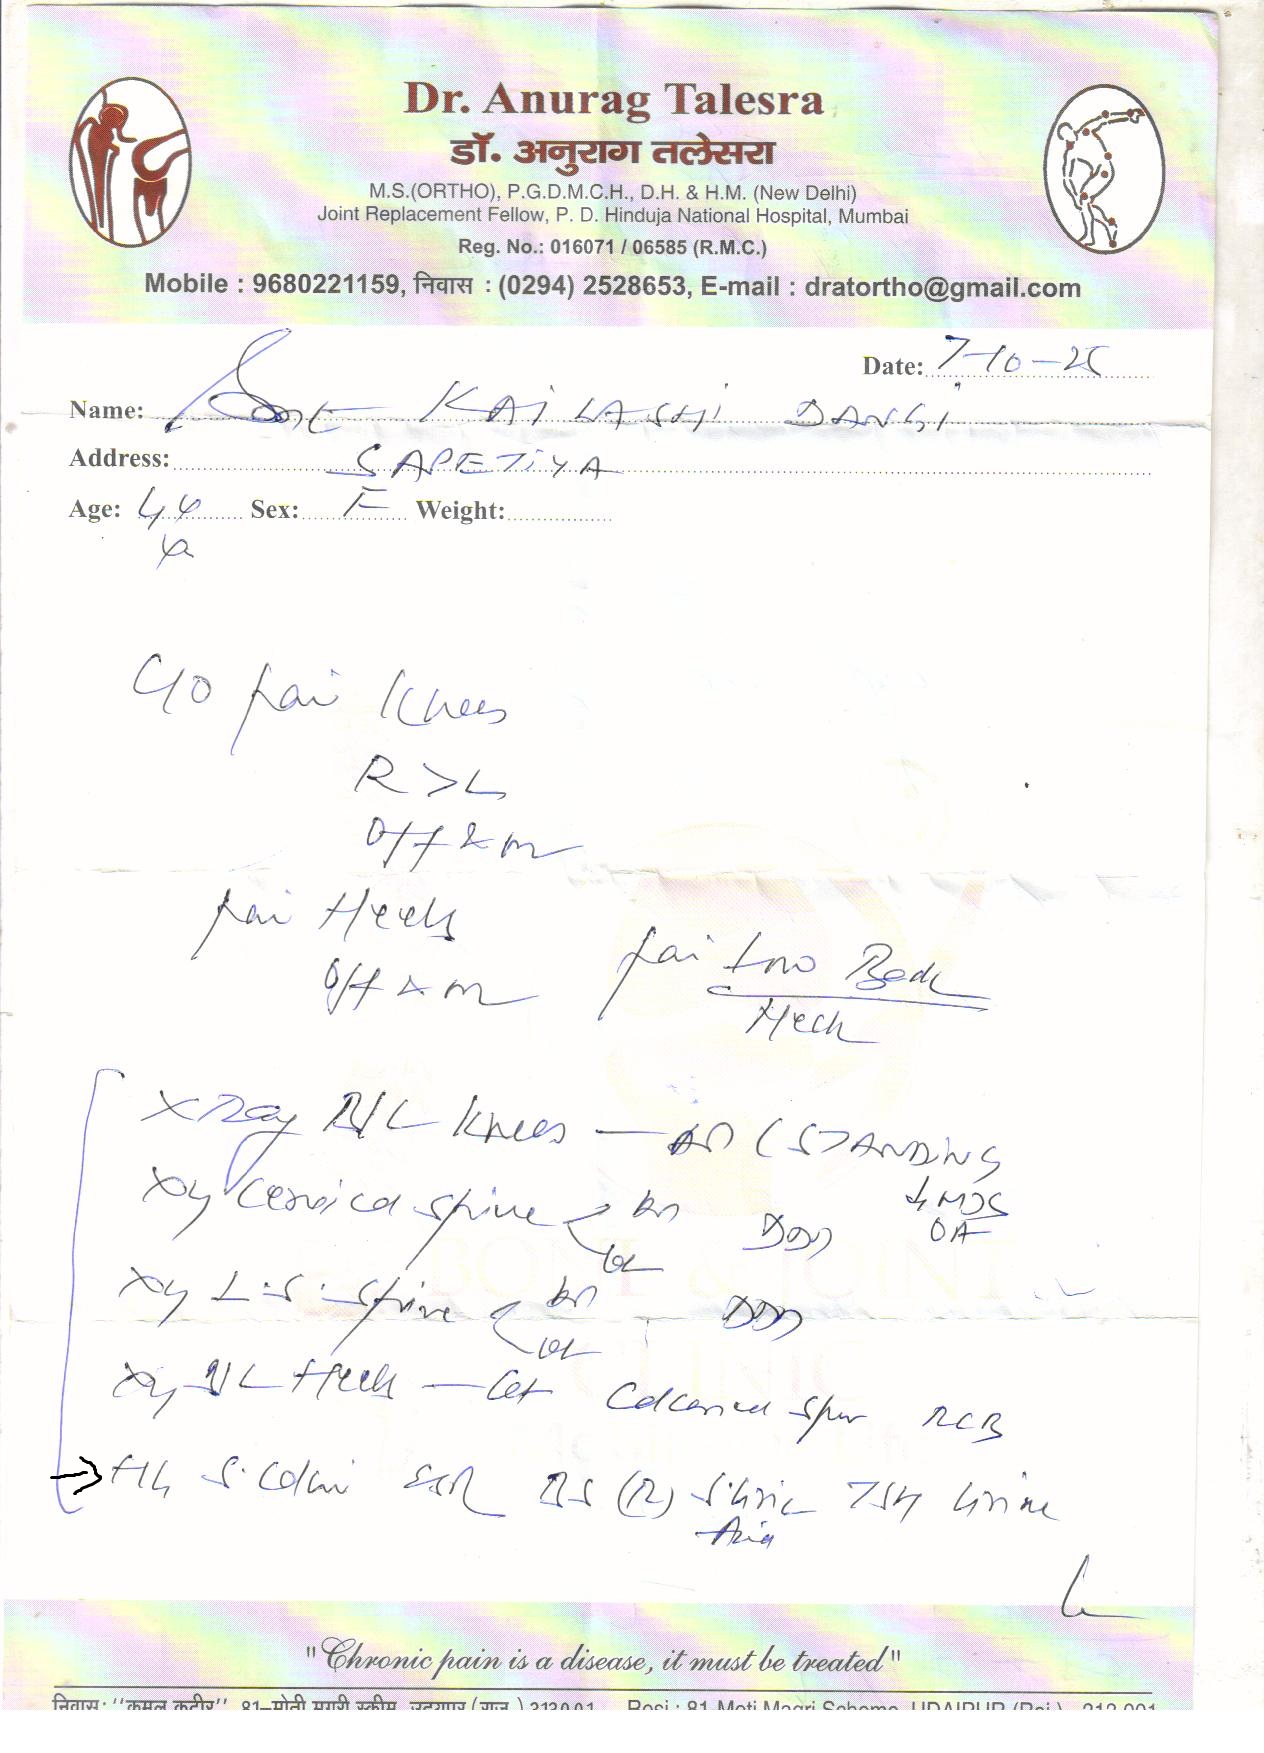 Dr. Anurag Talesra
डॉ. अनुराग तलेसरा
M.S.(ORTHO), P.G.D.M.C.H., D.H. & H.M. (New Delhi)
Joint Replacement Fellow, P. D. Hinduja National Hospital, Mumbai
Reg. No.: 016071 / 06585 (R.M.C.)
Mobile : 9680221159, निवास : (0294) 2528653, E-mail : dratortho@gmail.com
Date: 7-10-25
Name: Smt KAILASHI DANGI
Address: SAPETIYA
Age: 44 Sex: F Weight:
C/O pain Knees
R > L
Off & on
pain Heels
Off & on
pain Low Back
Neck
X Ray B/L Knees — AP (STANDING
Xry Cervical spine AP DDD OA
Lat
Xry L-S-spine AP DDD
Lat
Xry B/L Heels — Lat Calcaneal spur
Hb S. Calci ESR BS (R) S. Uric TSH Urine
Acid
"Chronic pain is a disease, it must be treated"
निवास: "कमल कुटीर" 81-मोती मगरी स्कीम, उदयपुर (राज.) 313001 Resi : 81 Moti Magri Scheme, UDAIPUR (Raj.)